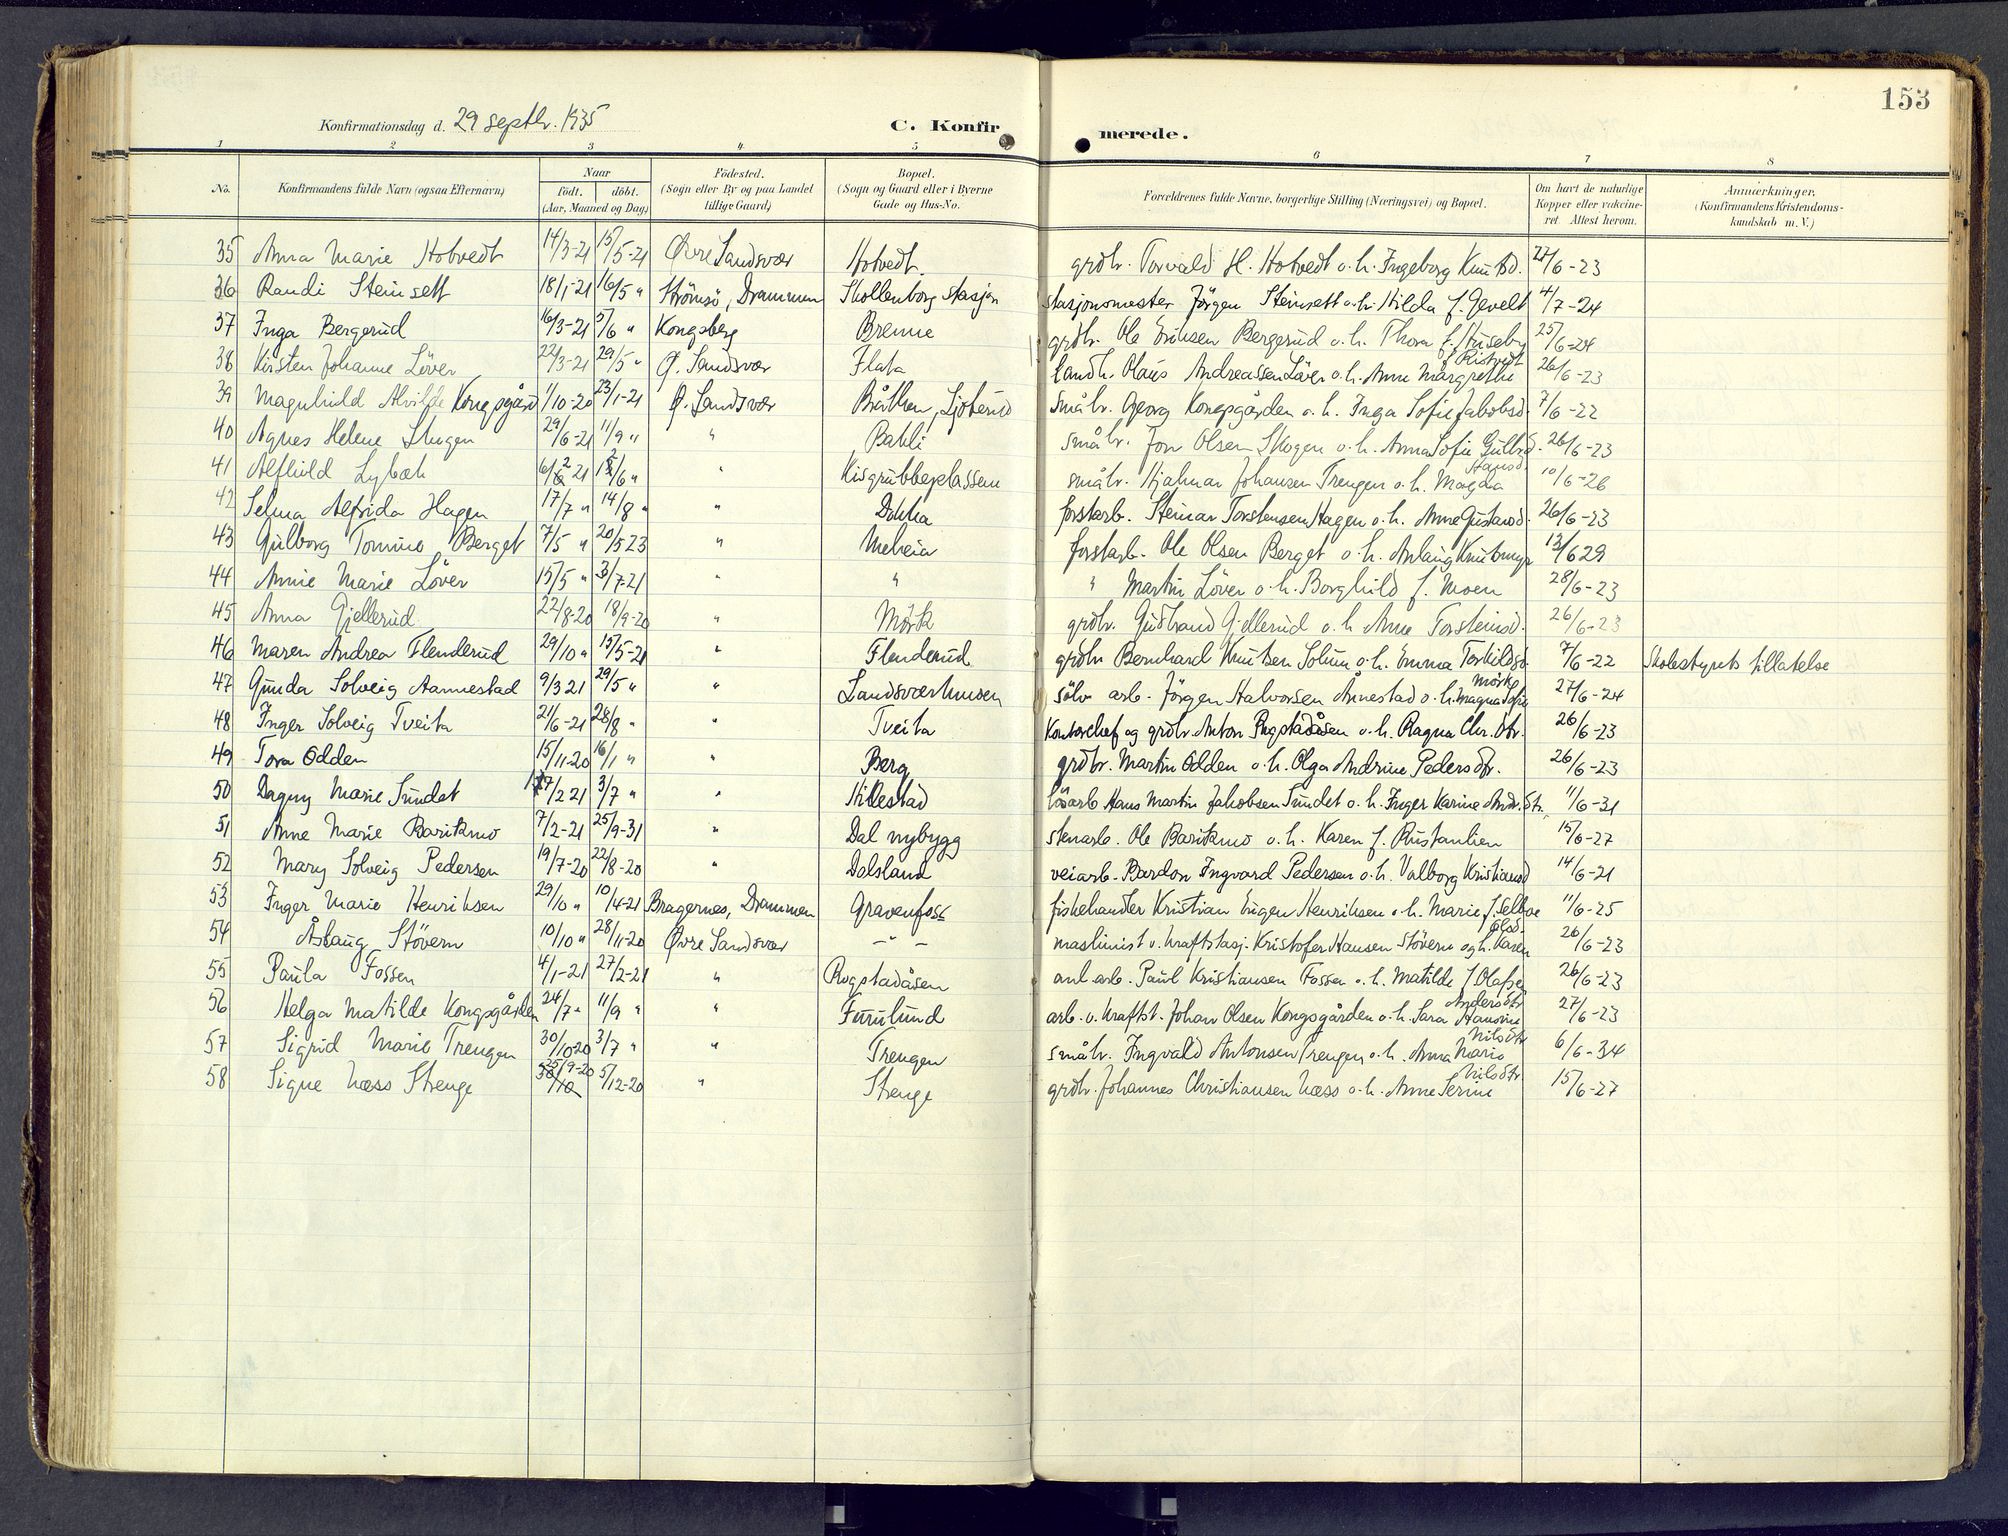 153
Konfirmationsdag d. 29 septbr. 1935 C. Konfirmerede.
1 2 3 4 5 6 7 8
No. Konfirmandens fulde Navn (ogsaa Efternavn) Naar födt. döbt. (Aar, Maaned og Dag) Födested. (Sogn eller By og paa Landet tillige Gaard) Bopæl. (Sogn og Gaard eller i Byerne Gade og Hus-No. Forældrenes fulde Navne, borgerlige Stilling (Næringsvei) og Bopæl. Om havt de naturlige Kopper eller vakcineret. Attest herom. Anmærkninger. (Konfirmandens Kristendomskundskab m. V.)
35 Anna Marie Hotvedt 14/3-21 15/5-21 Øvre Sandsvær Hotvedt. grdbr. Torvald H. Hotvedt o.h. Ingeborg Knutsd. 27/6-23
36 Randi Steinsett 18/1-21 16/5 " Strömsö, Drammen Skollenborg stasjon stasjonsmester Jörgen Steinsett o.h. Hilda f. Gevelt 4/7-24
37 Inga Bergerud 16/3-21 5/6 " Kongsberg Brenne grdbr. Ole Eriksen Bergerud o.h. Thora f. Huseby 25/6-24
38 Kirsten Johanne Löver 22/3-21 29/5 " Ø. Sandsvær Flata landh. Olaus Andreassen Löver o.h. Anne Margrethe f. Ristvedt 26/6-23
39 Magnhild Alvilde Kongsgård 11/10-20 23/1-21 Ø. Sandsvær Bråthen, Ljøterud småbr. Georg Kongsgården o.h. Inga Sofie Jakobsd. 7/6-22
40 Agnes Helene Skogen 29/6-21 11/9 " " Bakli småbr. Jon Olsen Skogen o.h. Anna Sofie Gulbr.d. 26/6-23
41 Alfhild Lybæk 6/2 21 /6 " " Kisgrubbeplassen småbr. Hjalmar Johansen Trengen o.h. Magda Hansd. 10/6-26
42 Selma Alfrida Hagen 17/7 " 14/8 " " Dokka forstarb. Steinar Torstensen Hagen o.h. Anne Gustavsd. 26/6-23
43 Gulborg Tomine Berget 7/5 " 20/5 23 " Meheia forstarb. Ole Olsen Berget o.h. Anlaug 13/6 29
44 Annie Marie Löver 15/5 " 3/7-21 " " " Martin Löver o.h. Borghild f. Moen 28/6-23
45 Anna Gjellerud 22/8-20 18/9-20 " Mörk grdbr. Gudbrand Gjellerud o.h. Anne Torsteinsd. 26/6-23
46 Maren Andrea Flenderud 29/10 " 15/5-21 " Flenderud grdbr Bernhard Knutsen Solum o.h. Emma Torkildsd. 7/6-22 Skolestyrets tillatelse
47 Gunda Solveig Aannestad 9/3 21 29/5 " " Landsværhusen sölv arb. Jörgen Halvorsen Ånnestad o.h. Magna Sofie Mörk 27/6-24
48 Inger Solveig Tveita 21/6-21 28/8 " " Tveita Kontorchef og grdbr. Anton Rogstadåsen o.h. Ragna Chr. dtr. 26/6-23
49 Tora Odden 15/11-20 16/1 " " Berg grdbr. Martin Odden o.h. Olga Andrine Pedersdtr. 26/6-23
50 Dagny Marie Sundet 17/2 21 3/7 " " Hilestad lösarb Hans Martin Jakobsen Sundet o.h. Inger Karine And. dtr. 11/6-31
51 Anne Marie Barikmo 7/2-21 25/9-31 " Dal nybygg stenarb. Ole Barikmo o.h. Karen f. Rustanlien 15/6-27
52 Mary Solveig Pedersen 19/7-20 22/8-20 " Dalsland veiarb. Bardon Ingvard Pedersen o.h. Valborg Kristiansd 14/6-21
53 Inger Marie Henriksen 29/10 " 10/4-21 Bragernes, Drammen Gravenfoss fiskehandler Kristian Eugen Henriksen o.h. Marie f. Selboe 11/6-25
54 Åslaug Stövern 10/10 " 28/11-20 Øvre Sandsvær - " - maskinist v. kraftstasj. Kristofer Hansen Stövern og h. Karen Olsd. 26/6-23
55 Paula Fossen 4/1-21 27/2-21 " Rogstadåsen anl. arb. Paul Kristiansen Fossen o.h. Matilde f. Olafsen 26/6-23
56 Helga Matilde Kongsgården 24/7 " 11/9 " " Furulund arb. v. kraftst. Johan Olsen Kongsgården o.h. Sara Hansine Andersdtr 27/6-23
57 Sigrid Marie Trengen 30/10-20 3/7 " " Trengen småbr. Ingvald Antonsen Trengen o.h. Anna Marie Nilsdtr 6/6-34
58 Signe Næss Strenge 25/9-20 30/10 5/12-20 " Strenge grdbr. Johannes Christiansen Næss o.h. Anne Serine Nilsdtr. 15/6-27